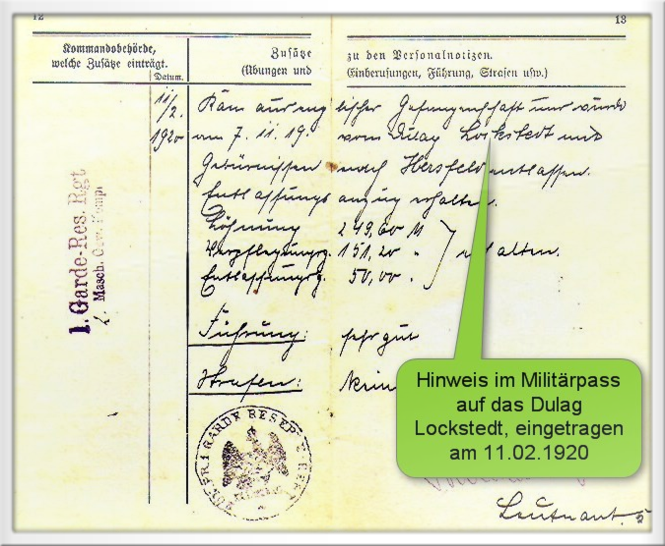 12
13
Kommandobehörde,
welche Zusätze einträgt.
Datum.
Zusätze zu den Personalnotizen.
(Übungen und Einberufungen, Führung, Strafen usw.)
11/2. Kam aus englischer Gefangenschaft und wurde
1920 am 7. 11. 19. vom Dulag Lockstedt mit
Gebürnissen nach Hersfeld entlassen.
Entlassungsanzug erhalten.
Löhnung 249,60 M
Verpflegungsg. 151,20 " erhalten.
Entlassungsg. 50,00 "
Führung: sehr gut
Strafen: Kein
1. Garde-Res. Rgt
Masch. Gew. Komp.
Leutnant
Hinweis im Militärpass
auf das Dulag
Lockstedt, eingetragen
am 11.02.1920